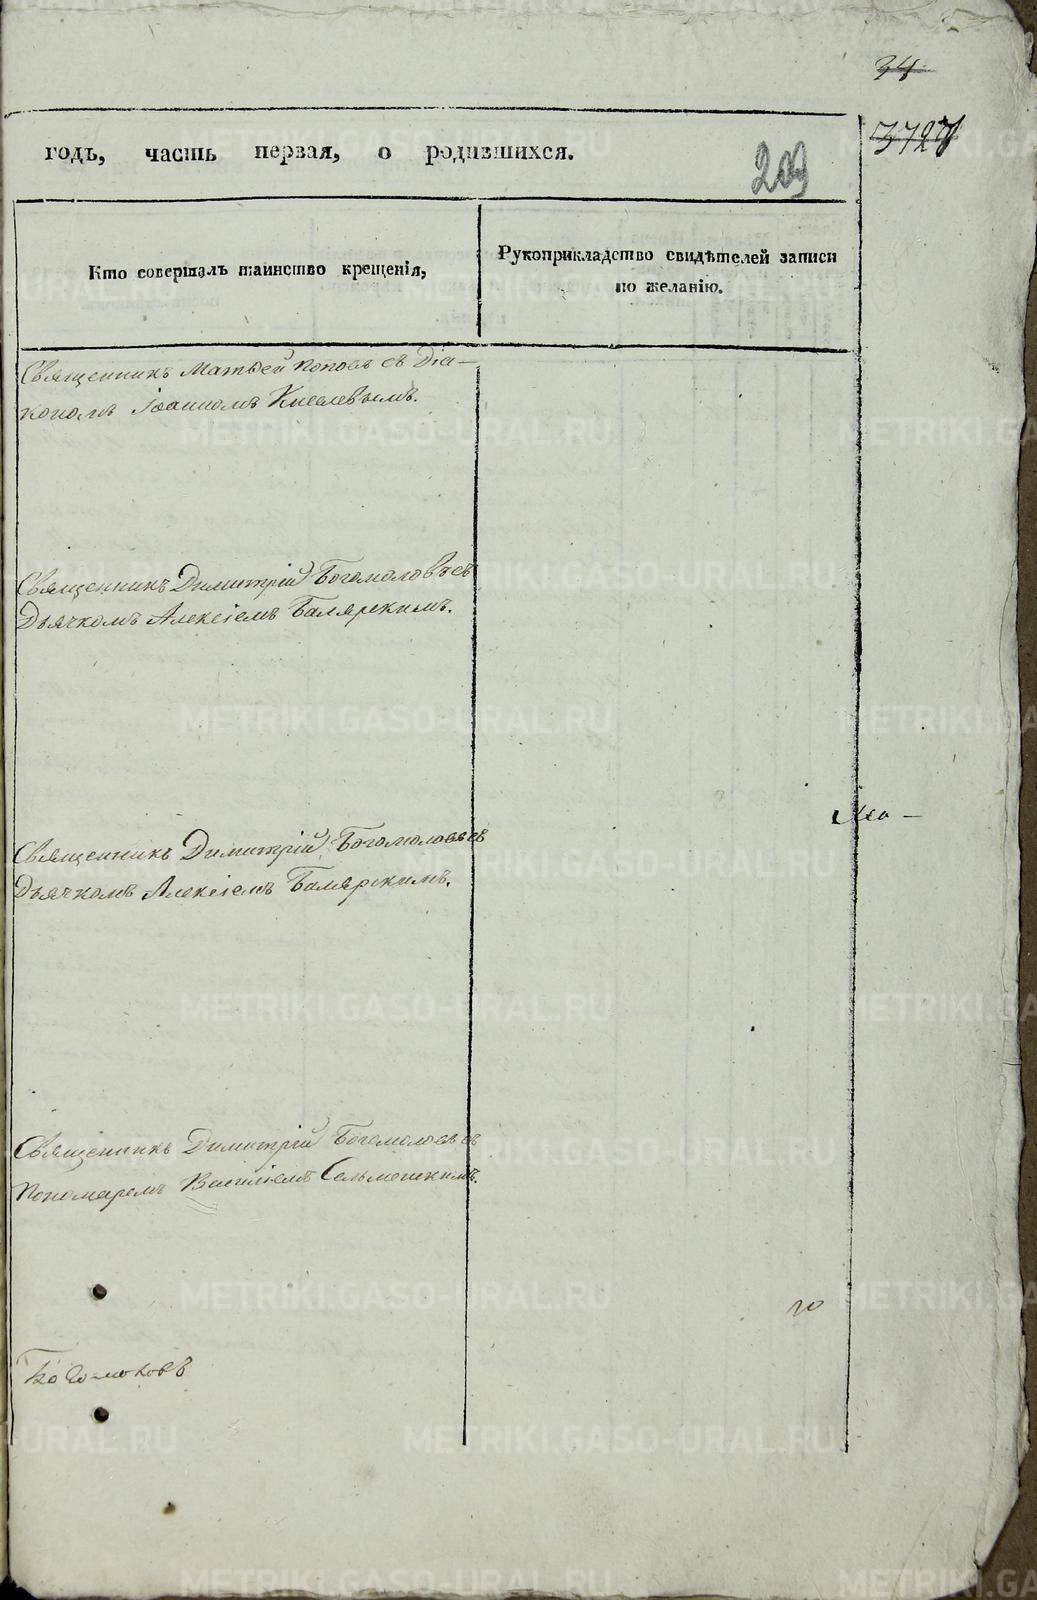 34
годъ, часть первая, о родившихся.
209
Кто совершалъ таинство крещенія,
Рукоприкладство свидѣтелей записи
по желанію.
Священникъ Матѳей Поповъ съ Діа-
кономъ Іоанномъ Киселевымъ.
Священникъ Димитрій Богомоловъ съ
Дьячкомъ Алексіемъ Балярскимъ.
Священникъ Димитрій Богомоловъ съ
Дьячкомъ Алексіемъ Балярскимъ.
Священникъ Димитрій Богомоловъ съ
Пономаремъ Василіемъ
Богомоловъ
METRIKI.GASO-URAL.RU